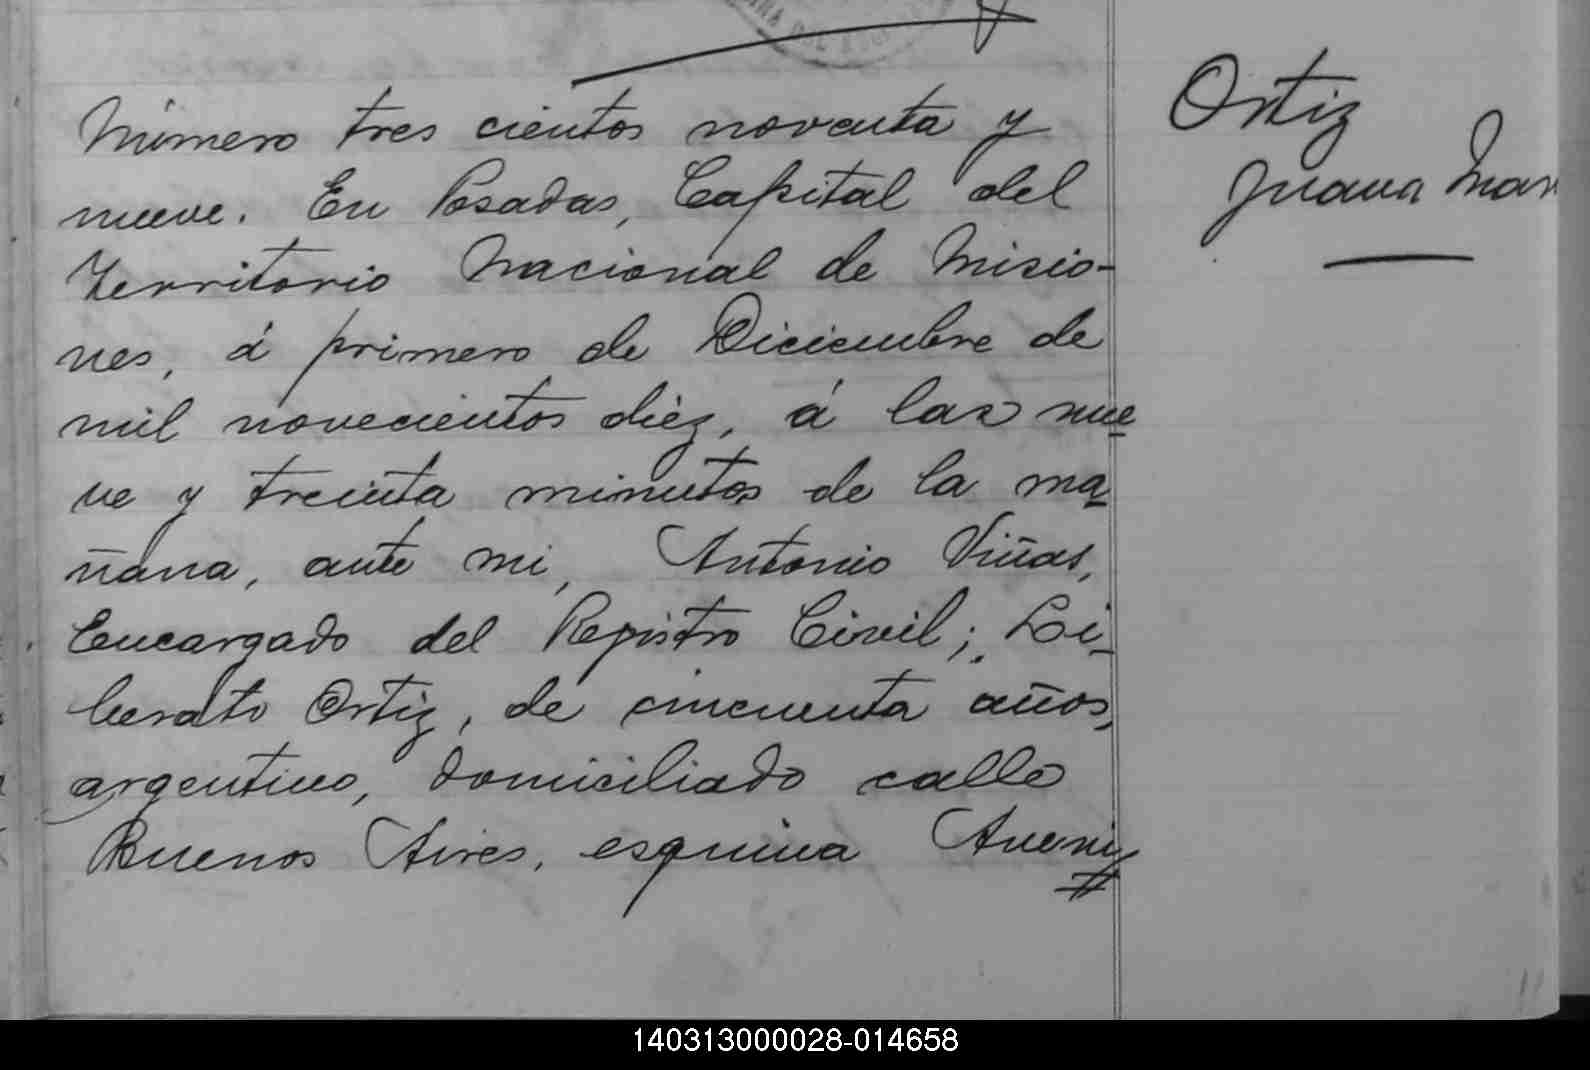 Número tres cientos noventa y
nueve. En Posadas, Capital del
Territorio Nacional de Misio-
nes, á primero de Diciembre de
mil novecientos diéz, á las nue
ve y treinta minutos de la ma
ñana, ante mi, Antonio Viñas,
Encargado del Registro Civil; Li
berato Ortiz, de cincuenta años,
argentino, domiciliado calle
Buenos Aires, esquina Aveni
Ortiz
Juana Mar
140313000028-014658